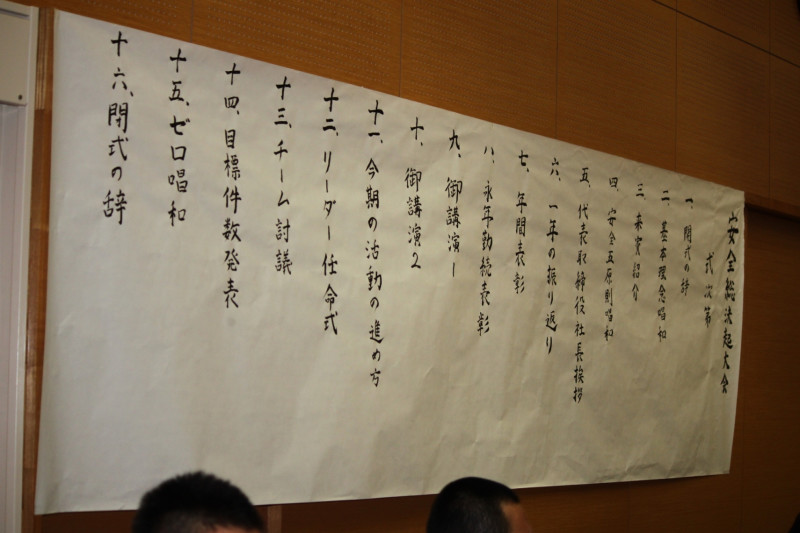 安全総決起大会
式次第
一、開式の辞
二、基本理念唱和
三、来賓紹介
四、安全五原則唱和
五、代表取締役社長挨拶
六、一年の振り返り
七、年間表彰
八、永年勤続表彰
九、御講演1
十、御講演2
十一、今期の活動の進め方
十二、リーダー任命式
十三、チーム討議
十四、目標件数発表
十五、ゼロ唱和
十六、閉式の辞